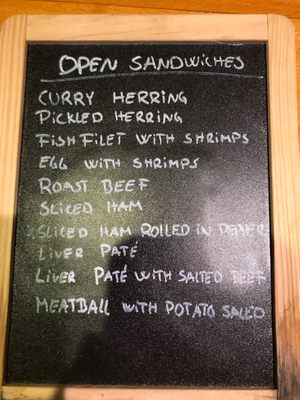 OPEN SANDWICHES
CURRY HERRING
PICKLED HERRING
FISH FILET WITH SHRIMPS
EGG WITH SHRIMPS
ROAST BEEF
SLICED HAM
SLICED HAM ROLLED IN PEPPER
LIVER PATÉ
LIVER PATÉ WITH SALTED BEEF
MEATBALL WITH POTATO SALED